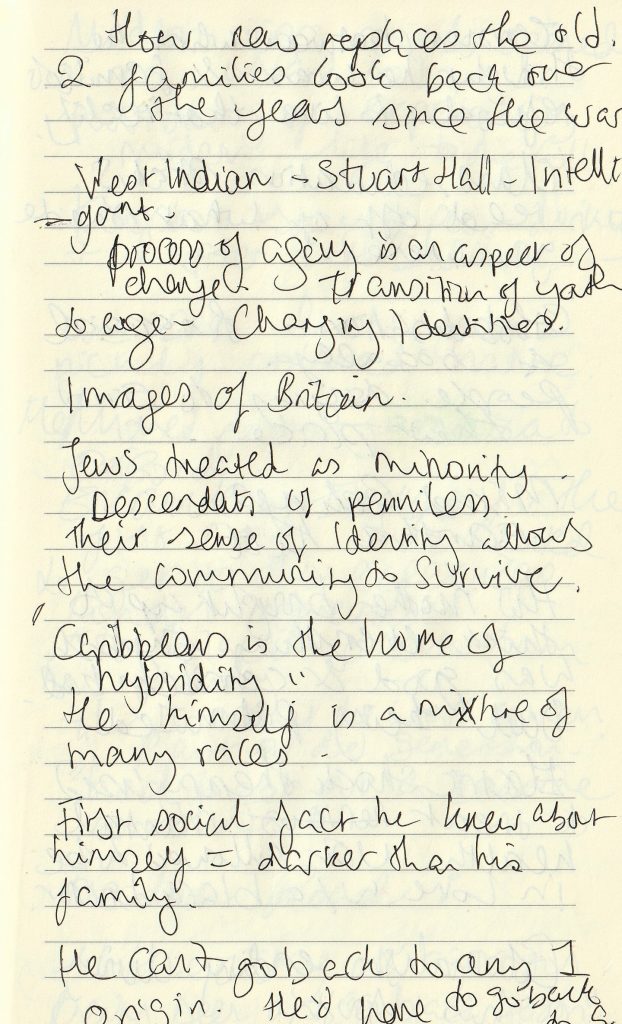 How new replaces the old.
2 families look back over
the years since the war
West Indian - Stuart Hall - Intelli
-gant.
process of ageing is an aspect of
change. Transition of youth
to age - Changing Identities.
Images of Britain.
Jews treated as minority.
Descendats of penniless
their sense of Identity allows
the community to survive.
"Caribbeans is the home of
hybridity"
He himself is a mixture of
many races.
First social fact he knew about
himself = darker than his
family.
He can't go back to any 1
origin. He'd have to go back